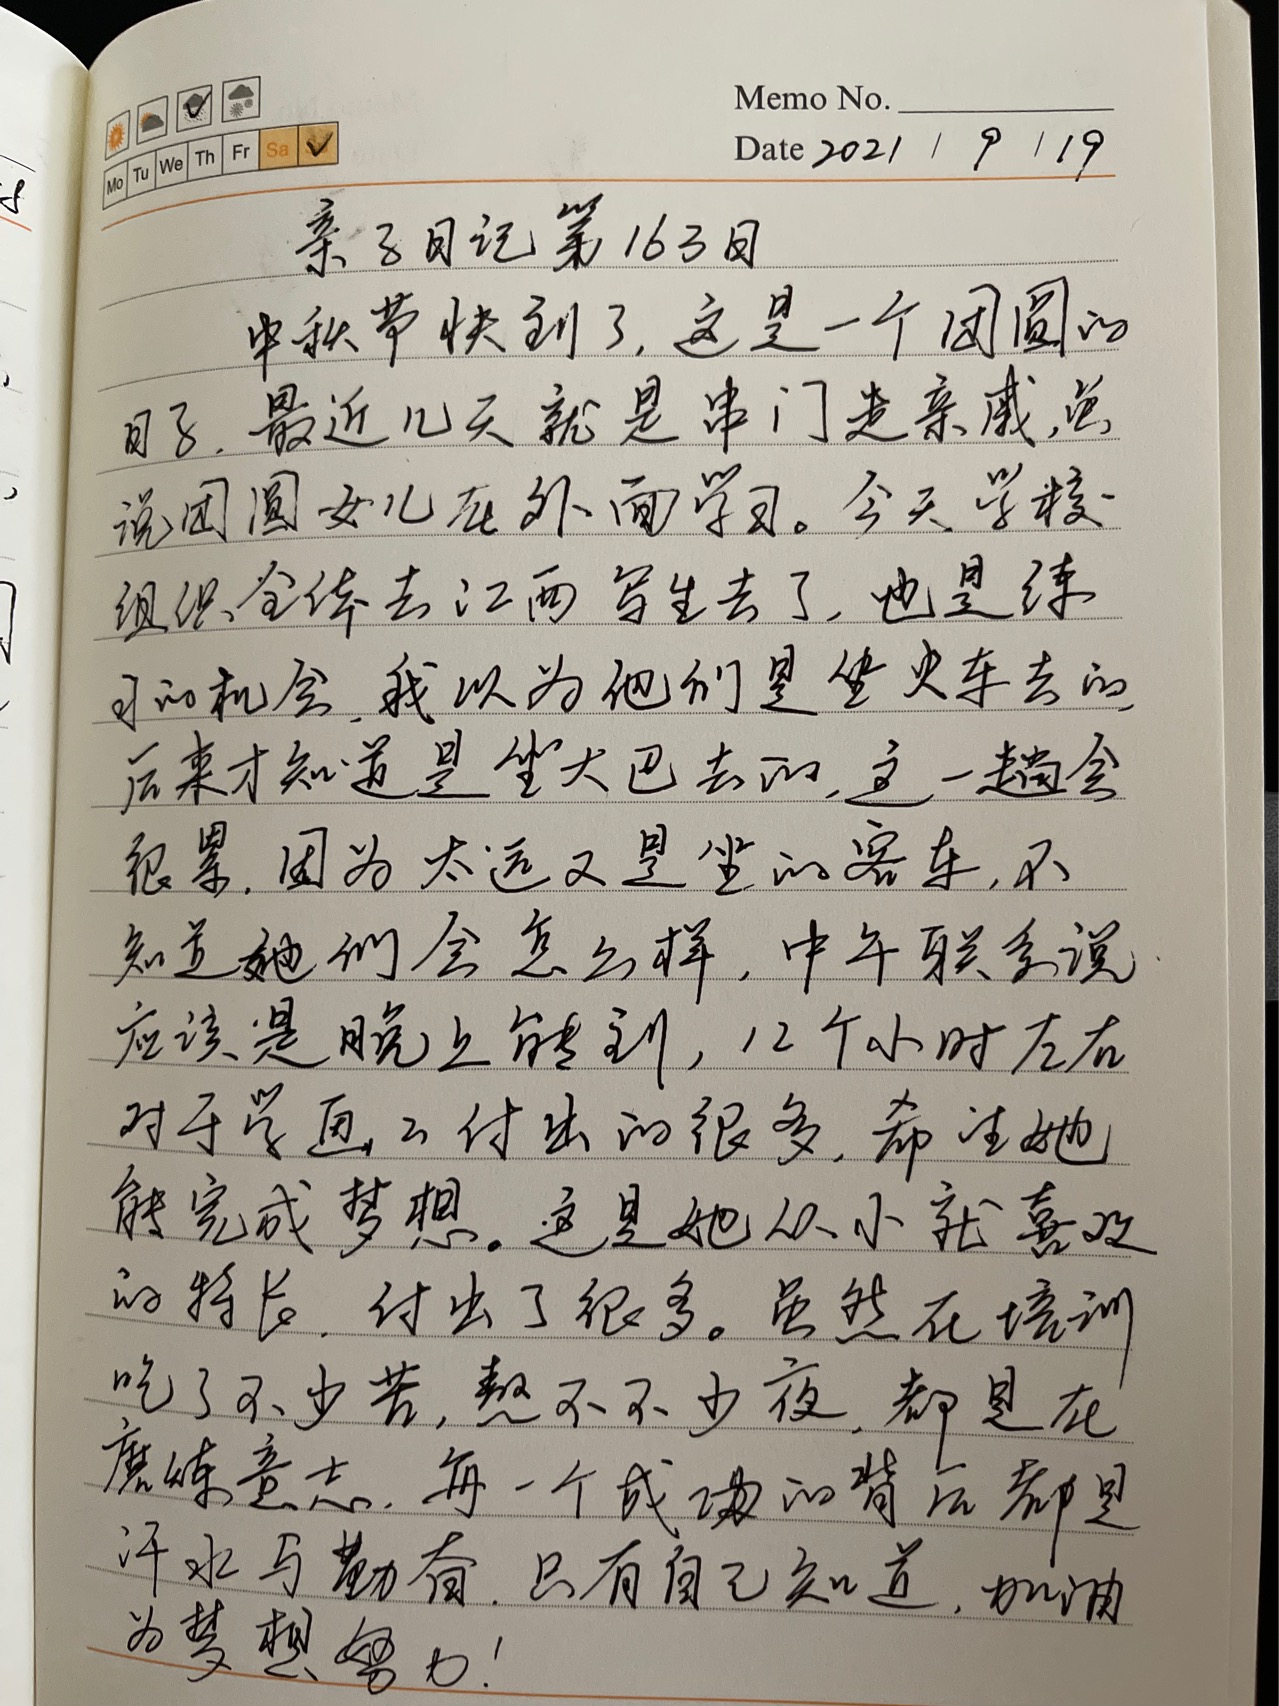 Memo No.
Mo Tu We Th Fr Sa
Date 2021 / 9 / 19
亲子日记第163日
中秋节快到了,这是一个团圆的
日子.最近几天就是串门走亲戚,虽
说团圆女儿在外面学习。今天学校
组织全体去江西写生去了,也是练
习的机会,我以为他们是坐火车去的,
后来才知道是坐大巴去的,这一趟会
很累.因为太远又是坐的客车,不
知道她们会怎么样,中午联系说
应该是晚上能到,12个小时左右
对于学画付出的很多.希望她
能完成梦想。这是她从小就喜欢
的特长.付出了很多。虽然在培训
吃了不少苦,熬不不少夜,都是在
磨练意志.每一个成功的背后都是
汗水与勤奋.只有自己知道,加油
为梦想努力!